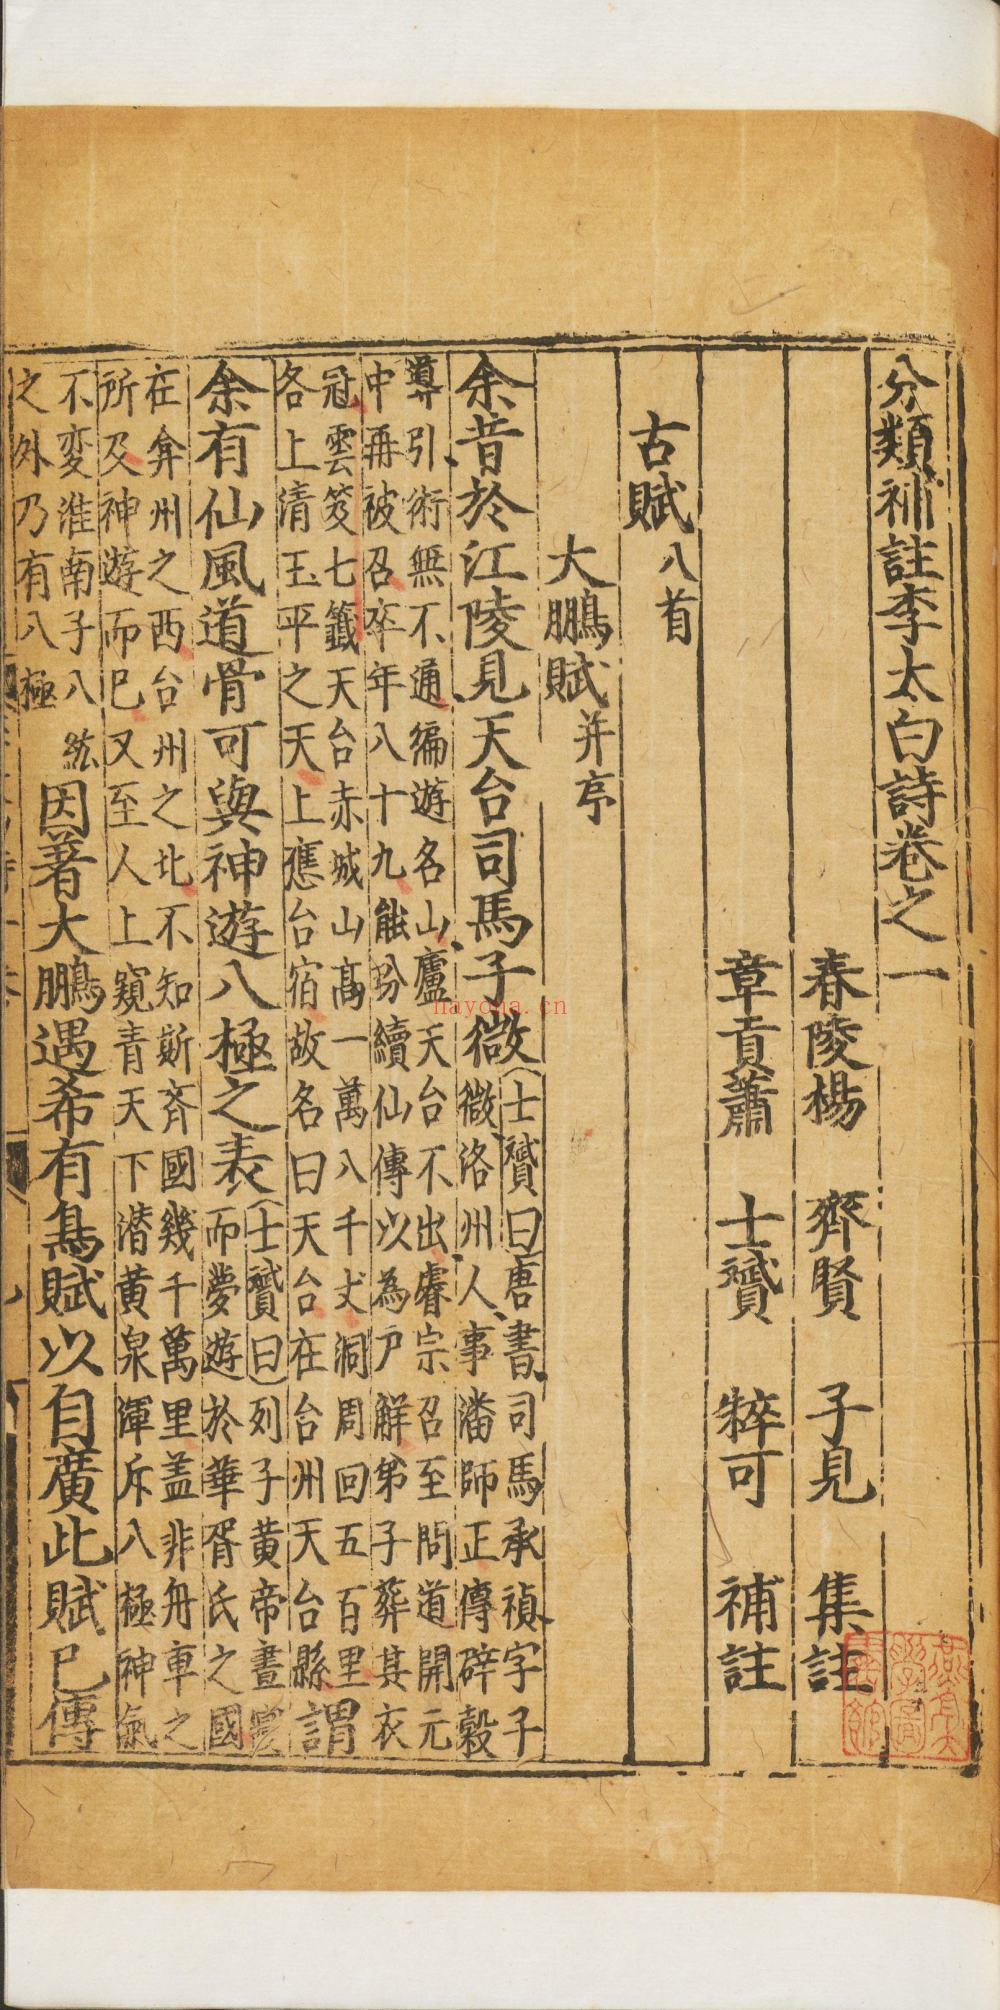 分類補註李太白詩卷之一
舂陵楊 齊賢 子見 集註
章貢蕭 士贇 粹可 補註
古賦八首
大鵬賦并序
余昔於江陵見天台司馬子微
士贇曰唐書司馬承禎字子
微洛州人事潘師正傳辟穀
導引術無不通徧遊名山廬天台不出睿宗召至問道開元
中再被召卒年八十九能玢續仙傳以為尸解弟子葬其衣
冠雲笈七籤天台赤城山高一萬八千丈洞周回五百里
各上清玉平之天上應台宿故名曰天台在台州天台縣
謂
余有仙風道骨可與神遊八極之表
士贇曰列子黃帝晝寢
而夢遊於華胥氏之國
在弇州之西台州之北不知斯齊國幾千萬里盖非舟車之
所及神遊而已又至人上窺青天下潜黃泉渾斥八極神氣
不変淮南子八紘
之外乃有八極
因著大鵬遇希有鳥賦以自廣此賦已傳
nayona.cn